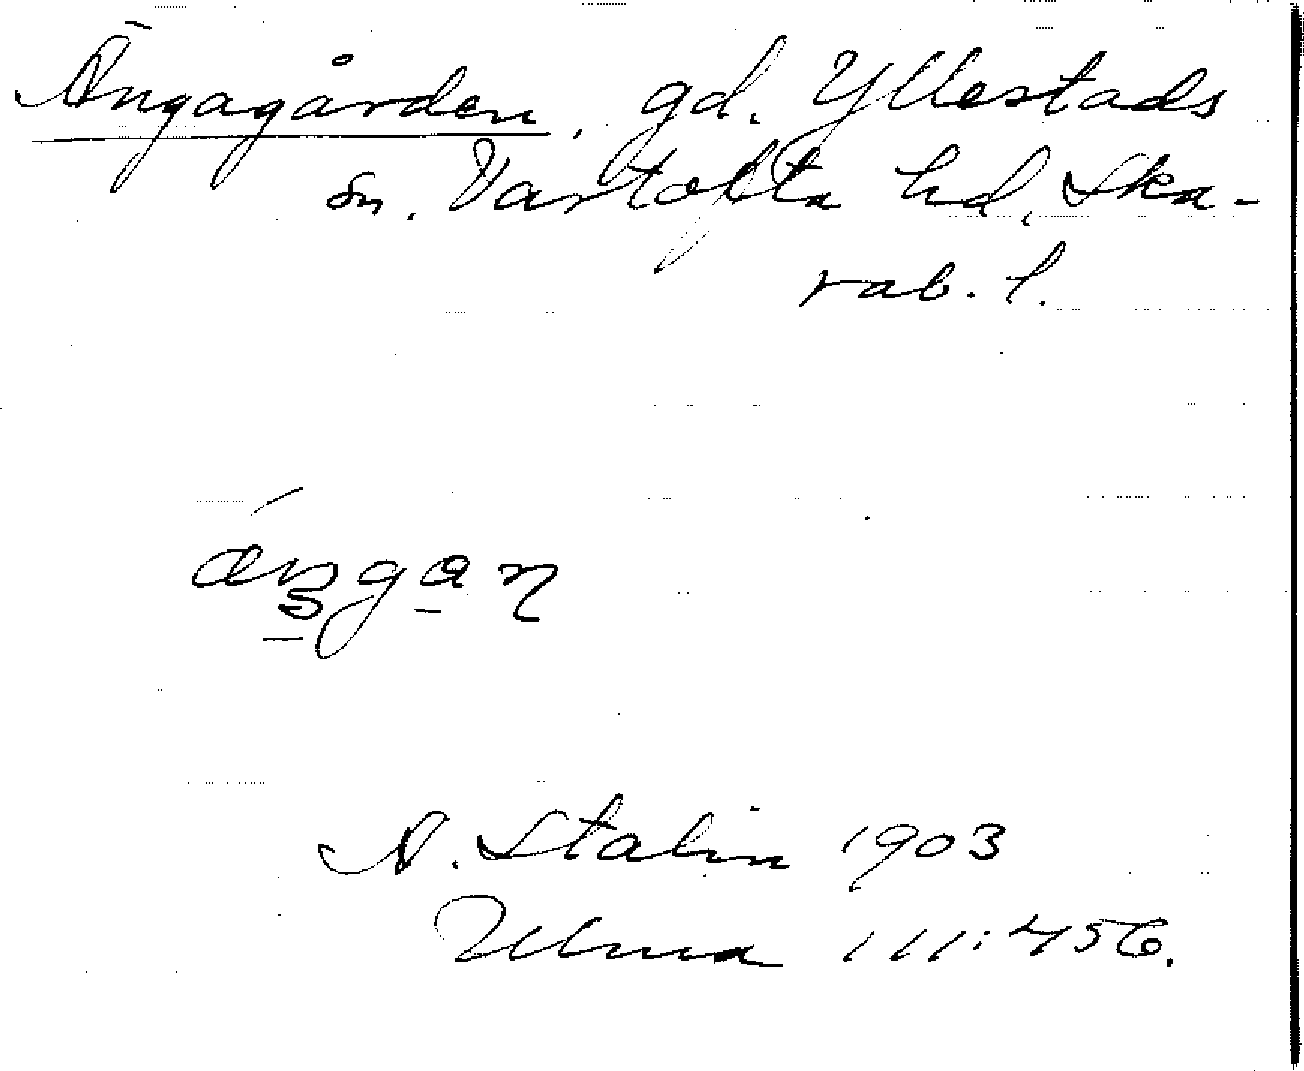 Ängagården, gd. Yllestads
sn. Vartofta hd, Ska-
rab. l.
A. Stalin 1903
Ulma 111:456.